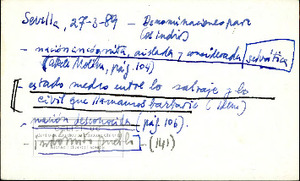 Sevilla, 27-3-89 - Denominaciones para
los indios
- nación incógnita, aislada y considerada selvática
(Molina, pág. 104)
- estado medio entre lo salvaje y lo
civil que llamamos barbarie (idem)
- nación desconocida (pág. 106)
- pueblo - (141)